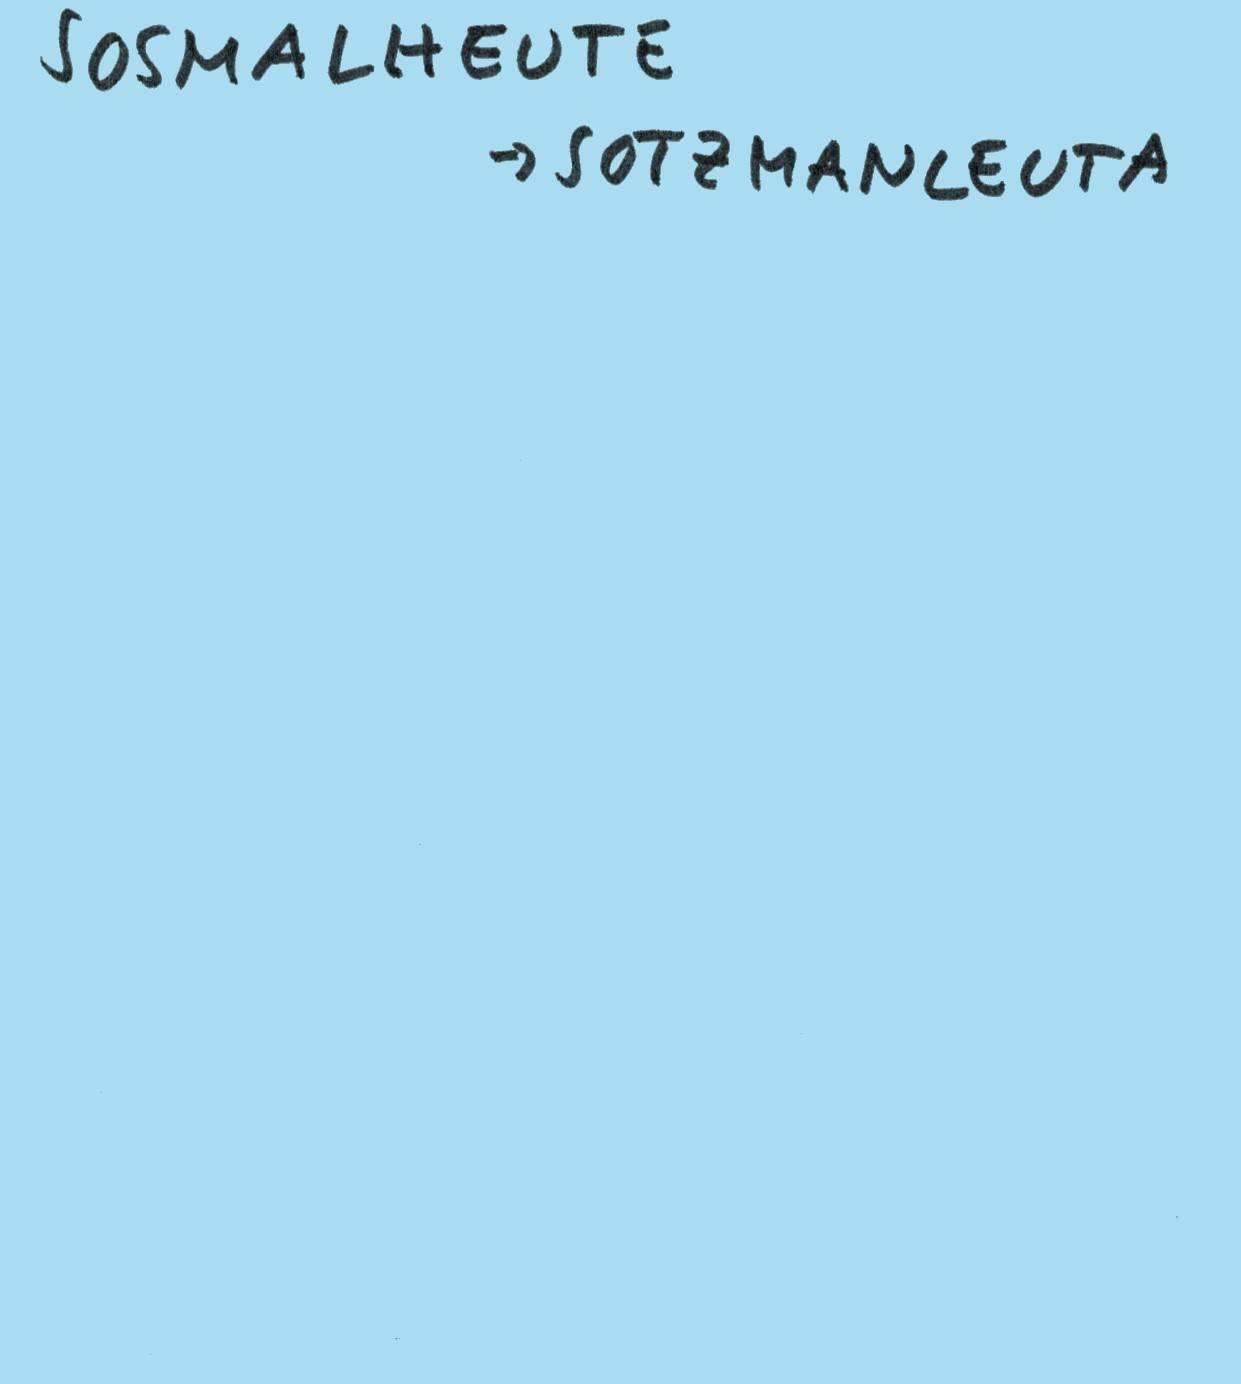 SOSMALHEUTE
→SOTZMANLEUTA